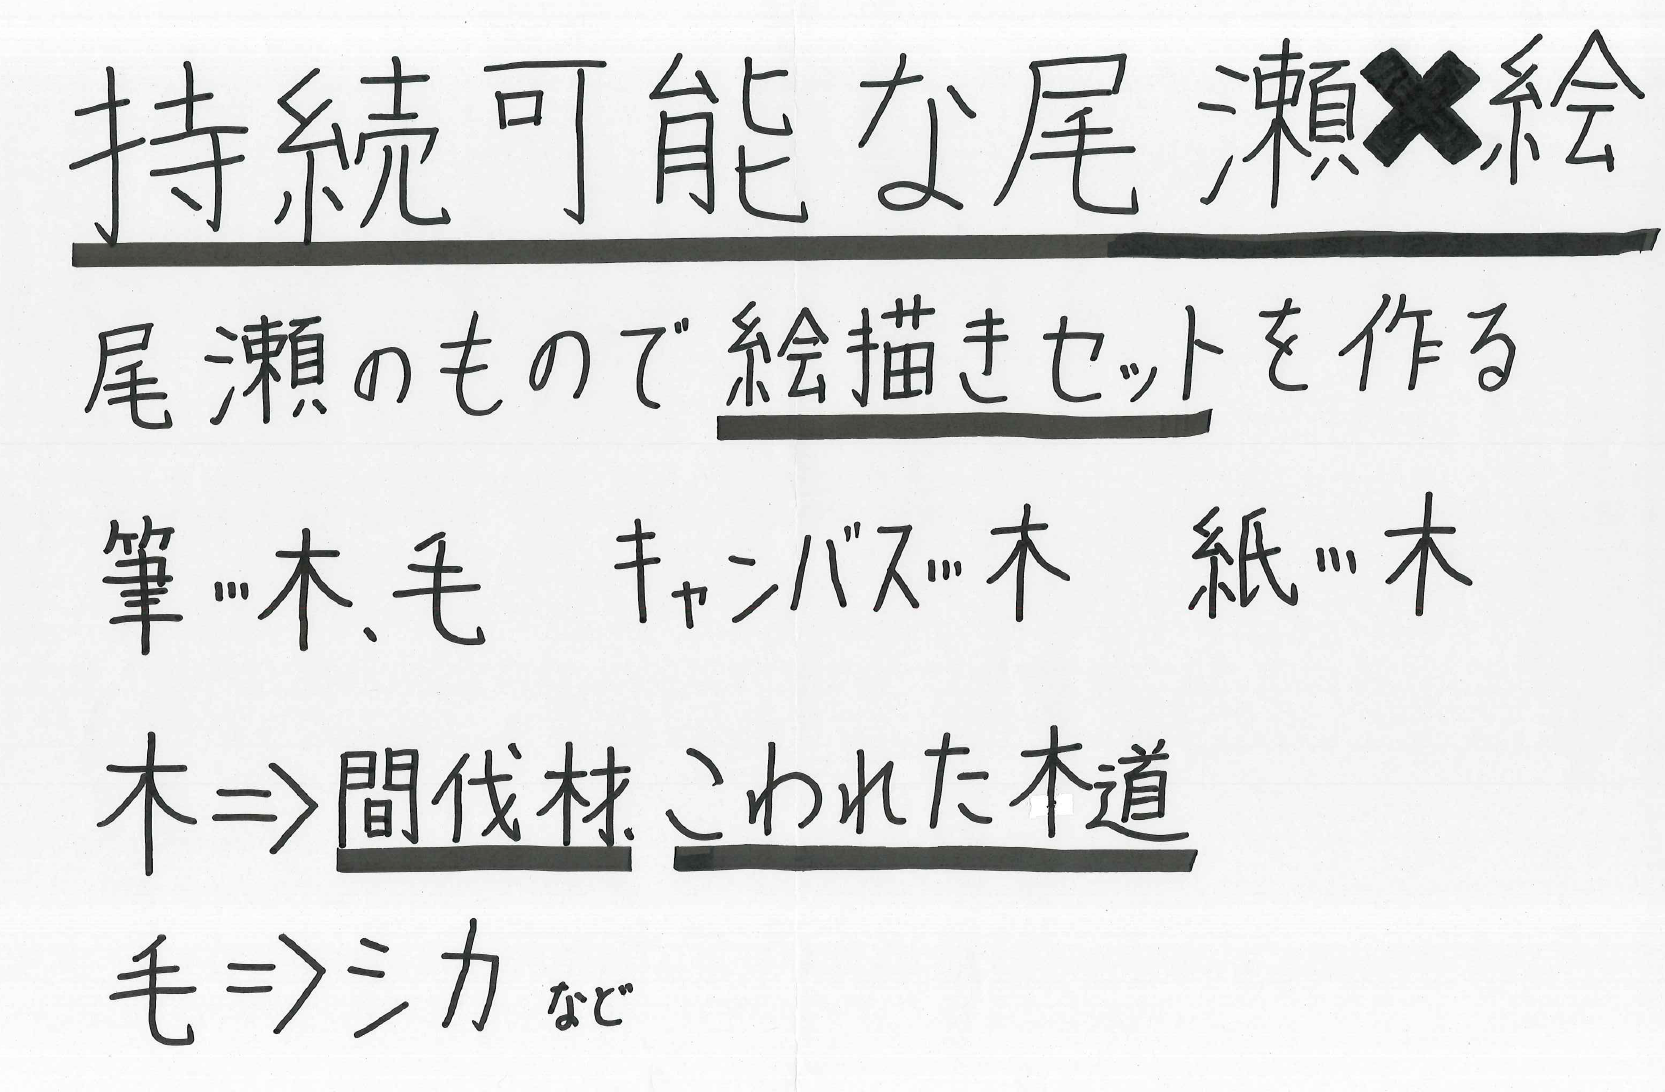 持続可能な尾瀬✖絵
尾瀬のもので絵描きセットを作る
筆…木、毛　キャンバス…木　紙…木
木=>間伐材、こわれた木道
毛=>シカなど